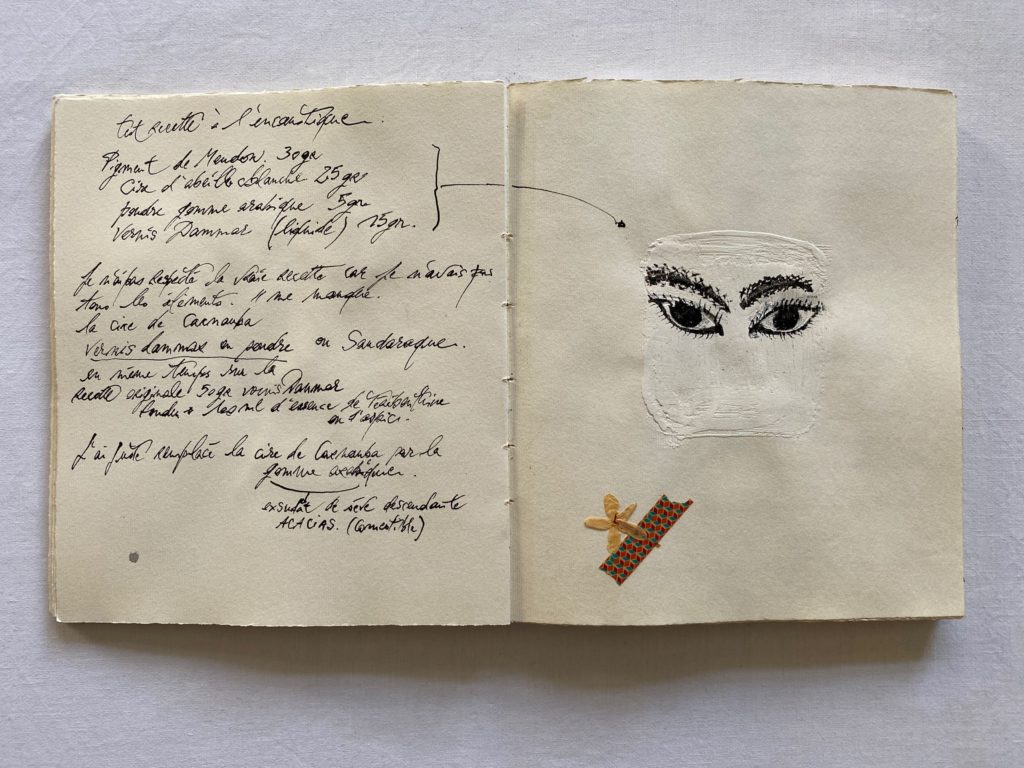 test recette à l'encaustique.
Pigment de Meudon. 30gr
Cire d'abeille blanche 25grs
poudre gomme arabique 5gr
Vernis Dammar (liquide) 15gr.
Je n'ai pas respecté la vraie recette car je n'avais pas
tous les éléments. Il me manque.
la cire de Carnauba
Vernis dammar en poudre ou Sandaraque.
en même temps sur la
recette originale 50gr vernis Dammar
poudre + 100ml d'essence de térébenthine
ou d'aspic.
J'ai juste remplacé la cire de Carnauba par la
gomme arabique.
exsudat de sève descendante
ACACIAS. (comestible)